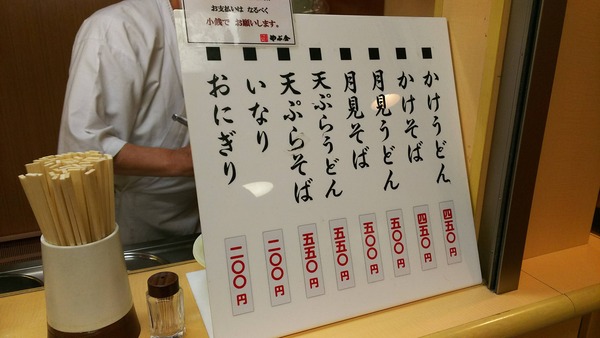 お支払いは なるべく
小銭で お願いします。
かけうどん 四五〇円
かけそば 四五〇円
月見うどん 五〇〇円
月見そば 五〇〇円
天ぷらうどん 五五〇円
天ぷらそば 五五〇円
いなり 二〇〇円
おにぎり 二〇〇円